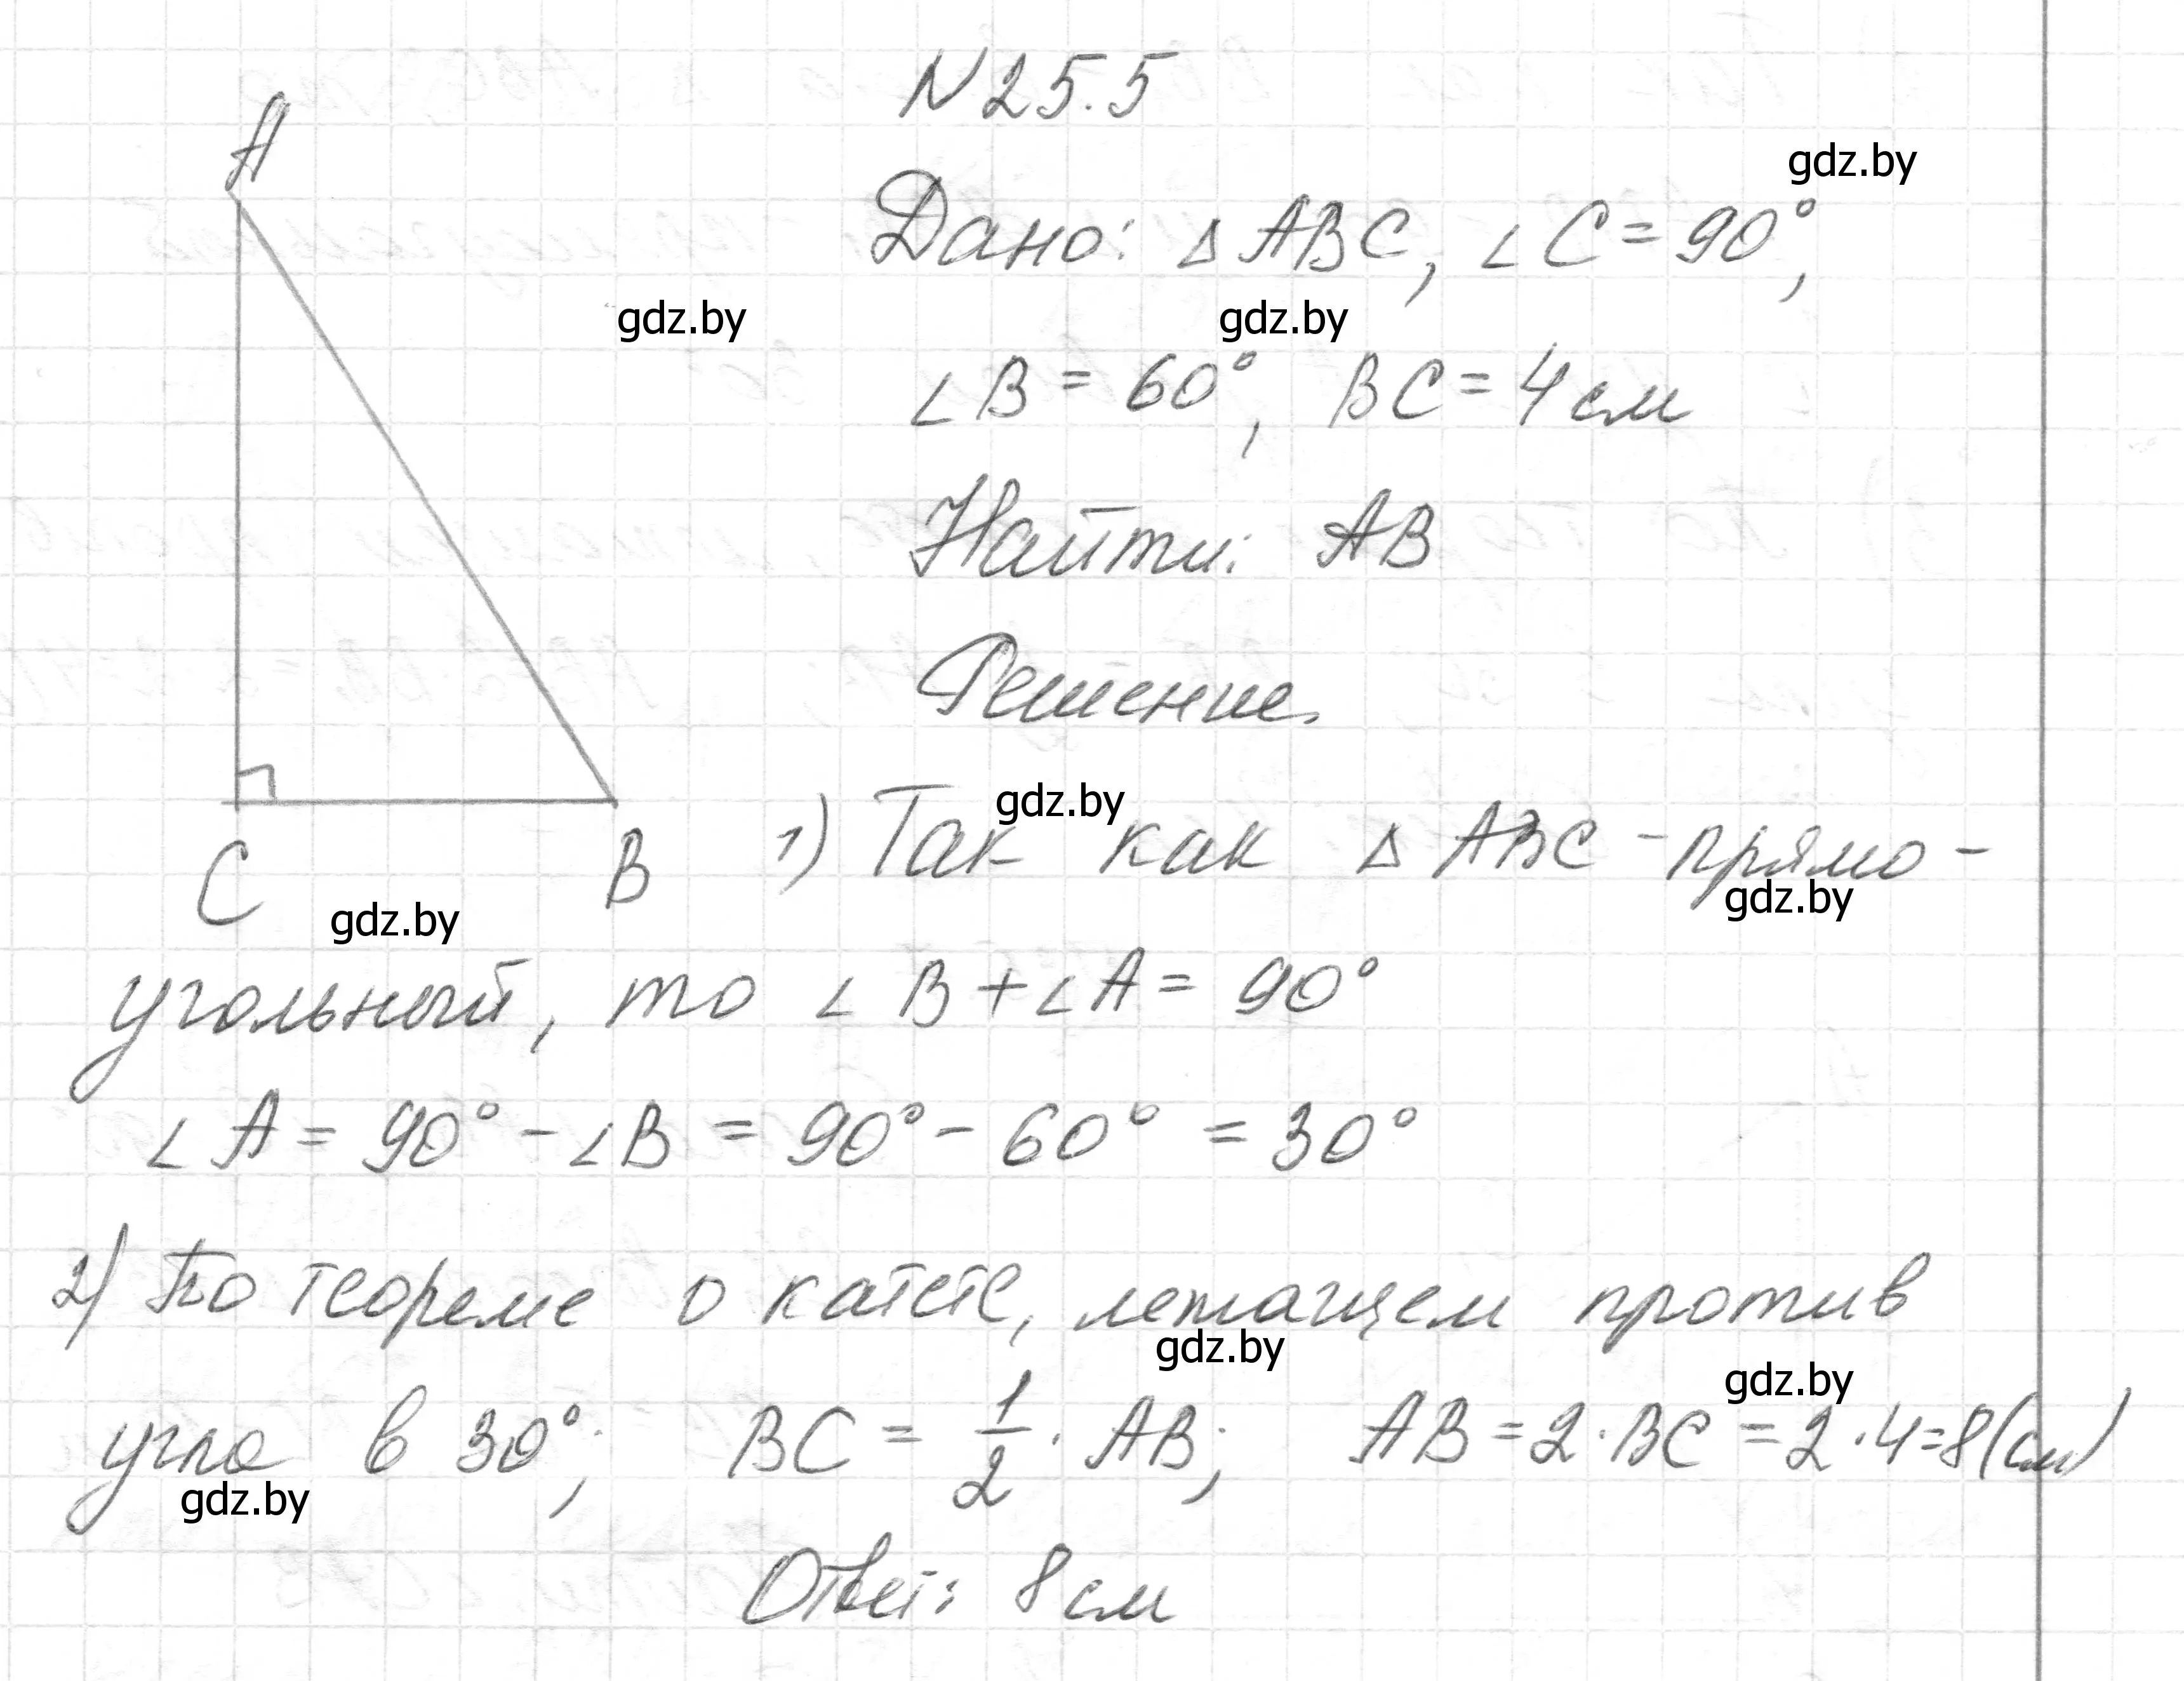 N 25.5
A
gdz.by
Дано: △ ABC, ∠ C = 90°,
gdz.by
gdz.by
∠ B = 60°, BC = 4 см
Найти: AB
Решение.
gdz.by
C
B
1) Так как △ ABC - прямо-
gdz.by
gdz.by
угольный, то ∠ B + ∠ A = 90°
∠ A = 90° - ∠ B = 90° - 60° = 30°
2) По теореме о катете, лежащем против
gdz.by
gdz.by
угла в 30°; BC = 1/2 · AB; AB = 2 · BC = 2 · 4 = 8 (см)
gdz.by
Ответ: 8 см